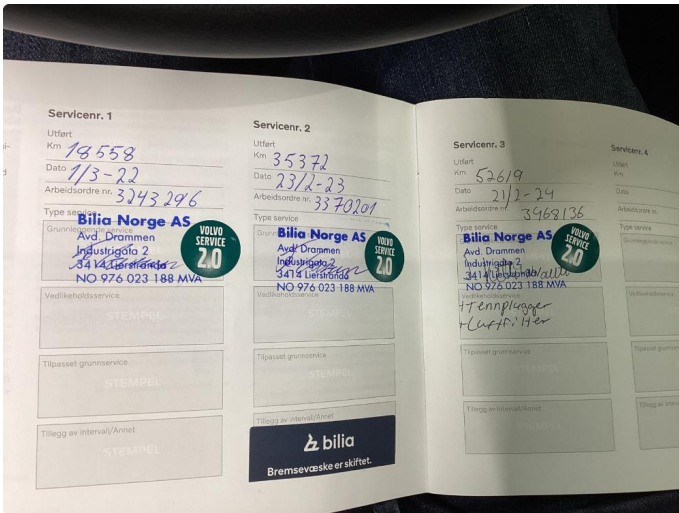 Servicenr. 1
Utført
Km 18558
Dato 1/3-22
Arbeidsordre nr. 3243296
Type service
Grunnleggende service
Bilia Norge AS
Avd. Drammen
Industrigata 2
3414 Lierstranda
NO 976 023 188 MVA
VOLVO
SERVICE
2.0
Vedlikeholdsservice
STEMPEL
Tilpasset grunnservice
STEMPEL
Tillegg av intervall/Annet
STEMPEL
Servicenr. 2
Utført
Km 35372
Dato 23/2-23
Arbeidsordre nr. 3370201
Type service
Bilia Norge AS
Avd. Drammen
Industrigata 2
3414 Lierstranda
NO 976 023 188 MVA
VOLVO
SERVICE
2.0
Vedlikeholdsservice
STEMPEL
Tilpasset grunnservice
STEMPEL
Tillegg av intervall/Annet
bilia
Bremsevæske er skiftet.
Servicenr. 3
Utført
Km 52619
Dato 21/2-24
Arbeidsordre nr. 3968136
Type service
Bilia Norge AS
Avd. Drammen
Industrigata 2
3414 Lierstranda
NO 976 023 188 MVA
VOLVO
SERVICE
2.0
Vedlikeholdsservice
+Tennplugger
+Luftfilter
Tilpasset grunnservice
STEMPEL
Tillegg av intervall/Annet
STEMPEL
Servicenr. 4
Utført
Km
Dato
Arbeidsordre nr.
Type service
Grunnleggende service
Vedlikeholdsservice
Tilpasset
Tillegg av